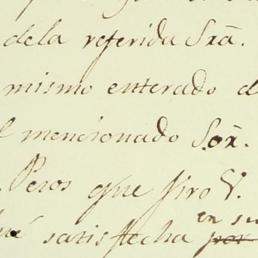 dela referida Srã.
mismo enterado d
l mencionado Sor.
Pesos que firo V.
en su
satisfecha por